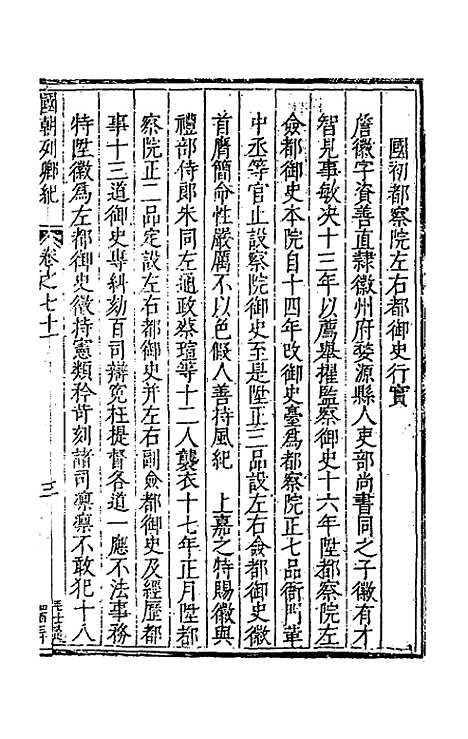 國初都察院左右都御史行實
詹徽字資善直隷徽州府婺源縣人吏部尚書同之子徽有才
智見事敏决十三年以薦舉擢監察御史十六年陞都察院左
僉都御史本院自十四年改御史臺爲都察院正七品衙門革
中丞等官止設察院御史至是陞正三品設左右僉都御史徽
首膺簡命性嚴厲不以色假人善持風紀　上嘉之特賜徽與
禮部侍郎朱同左通政蔡瑄等十二人襲衣十七年正月陞都
察院正二品定設左右都御史并左右副僉都御史及經歷都
事十三道御史專糾刻百司辯冤枉提督各道一應不法事務
特陞徽爲左都御史徽持憲類矜苛刻諸司凛凛不敢犯十八
國朝列卿紀
卷之七十一
三